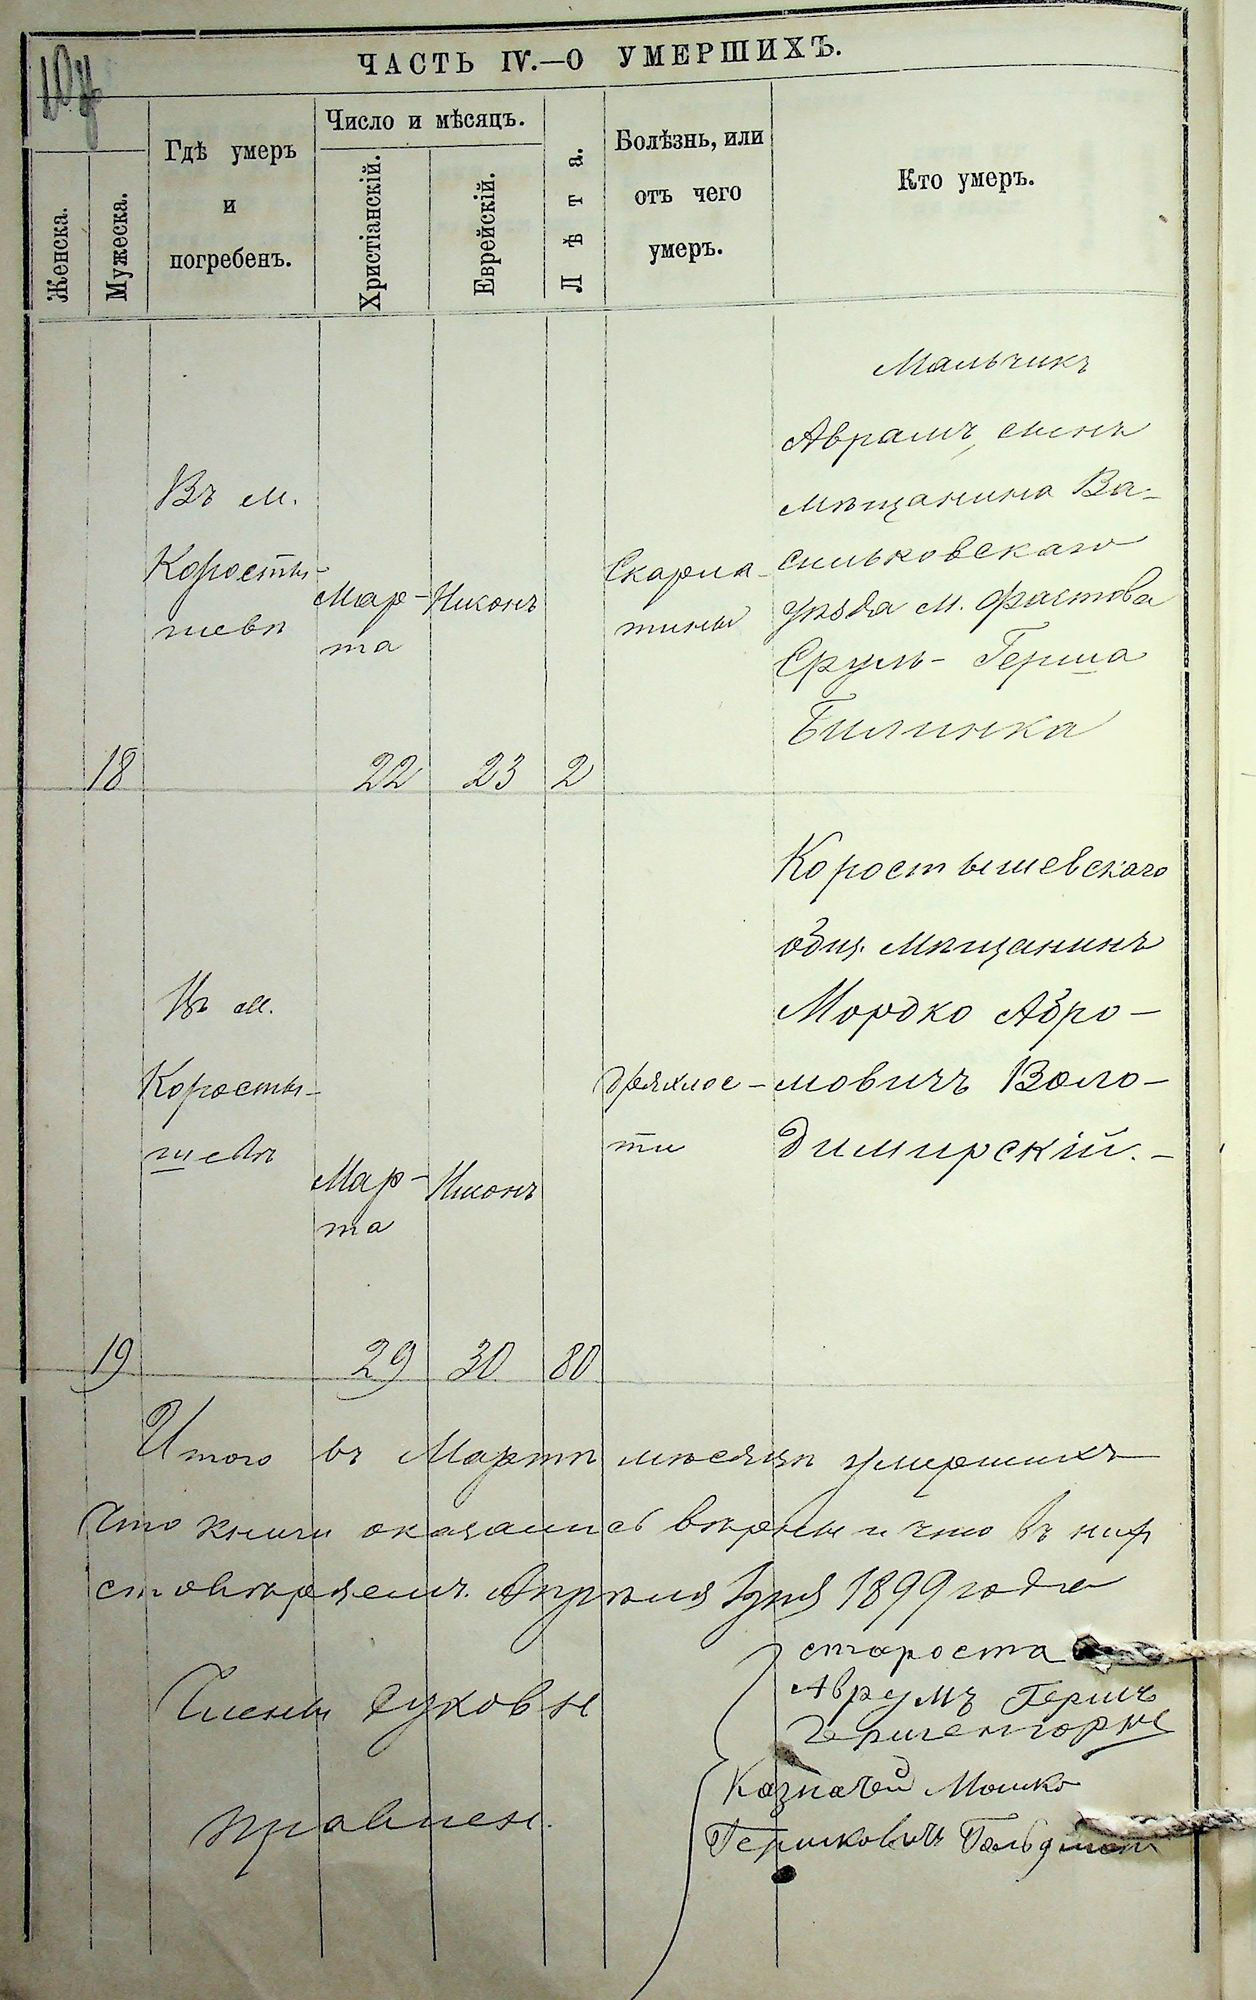 ЧАСТЬ IV.—О УМЕРШИХЪ.
Женска.
Мужеска.
Гдѣ умеръ
и
погребенъ.
Число и мѣсяцъ.
Христіанскій.
Еврейскій.
Лѣта.
Болѣзнь, или
отъ чего
умеръ.
Кто умеръ.
18
Въ м.
Коросты-
шевѣ
Мар-
та
22
Нисонъ
23
2
Скарла-
тины
Мальчикъ
Аврамъ, сынъ
мѣщанина Ва-
сильковскаго
уѣзда м. Фастова
Сруль-Герша
Билинка
19
Въ м.
Коросты-
шевѣ
Мар-
та
29
Нисонъ
30
80
Дряхлос-
ти
Коростышевскаго
общ. мѣщанинъ
Мордко Абро-
мовичъ Воло-
димирскій.-
Итого въ Мартѣ мѣсяцѣ умершихъ
Что книги оказались вѣрны и что въ нихъ
Апрѣля 1 дня 1899 года
Члены духовн
правлен.
староста
Аврумъ Гершъ
Гершенгорнъ
Казначей Мошко
Гершковичъ